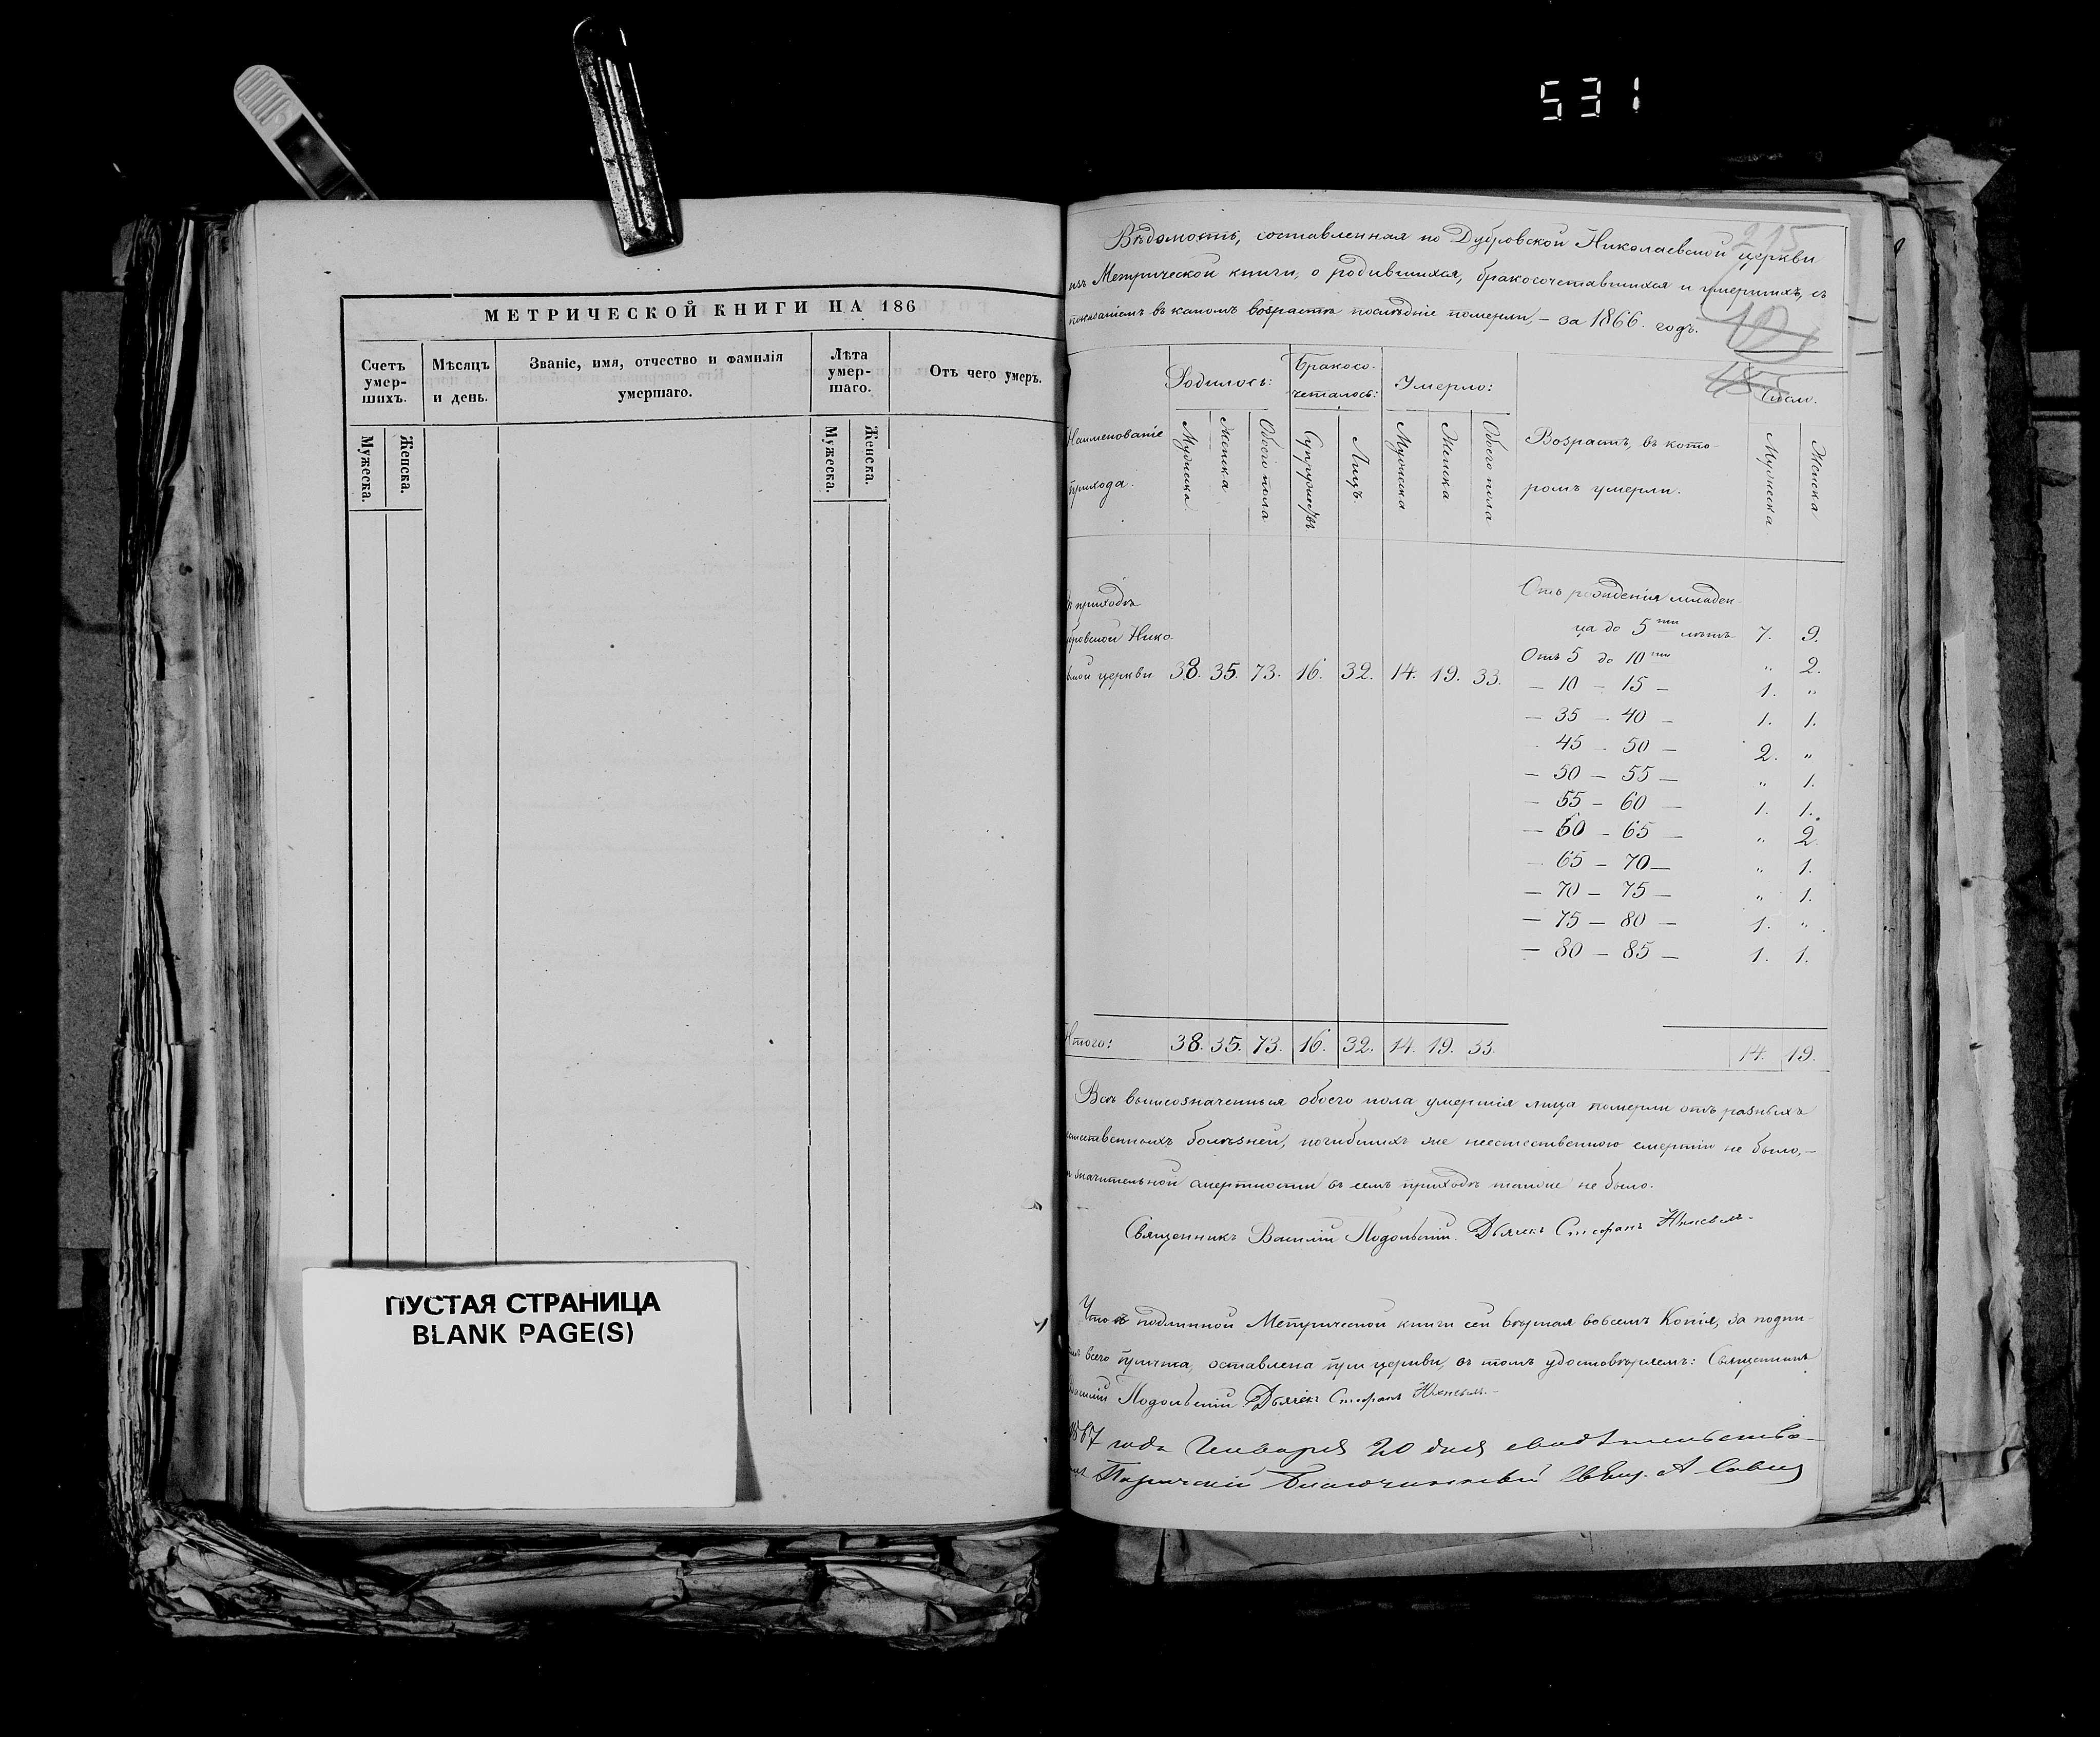 531
МЕТРИЧЕСКОЙ КНИГИ НА 186
Счетъ умер- шихъ.
Мѣсяцъ и день.
Званіе, имя, отчество и фамилія умершаго.
Лѣта умер- шаго.
Отъ чего умеръ.
Мужеска.
Женска.
Мужеска.
Женска.
ПУСТАЯ СТРАНИЦА
BLANK PAGE(S)
215
Вѣдомость, составленная по Дубровской Николаевской церкви
изъ Метрической книги, о родившихся, бракосочетавшихся и умершихъ, съ
показаніемъ въ какомъ возрастѣ послѣдніе померли, – за 1866. годъ.
Наименованіе прихода.
Родилось:
Бракосо- четалось:
Умерло:
Возрастъ, въ кото- ромъ умерли.
Число.
Мужеска
Женска
Обоего пола
Супружествъ
Лицъ.
Мужеска
Женска
Обоего пола
Мужеска
Женска
приходѣ
бровской Нико-
вской церкви 38. 35. 73. 16. 32. 14. 19. 33.
Отъ рожденія младен-
ца до 5ти лѣтъ 7. 9.
Отъ 5 до 10ти " 2.
– 10 – 15 – 1. "
– 35 – 40 – 1. 1.
– 45 – 50 – 2. "
– 50 – 55 – " 1.
– 55 – 60 – 1. 1.
– 60 – 65 – " 2.
– 65 – 70 – " 1.
– 70 – 75 – " 1.
– 75 – 80 – 1. "
– 80 – 85 – 1. 1.
Итого: 38. 35. 73. 16. 32. 14. 19. 33. 14. 19.
Всѣ вышеозначенныя обоего пола умершія лица померли отъ разныхъ
естественныхъ болѣзней, погибшихъ же неестественною смертію не было, –
и значительной смертности въ семъ приходѣ также не было.
Священникъ Василій Подольскій. Дьячекъ Стефанъ
Что съ подлинной Метрической книги сей вѣрная вовсемъ Копія, за подпи-
всего причта, оставлена при церкви, въ томъ удостовѣряемъ: Священникъ
Василій Подольскій Дьячекъ Стефанъ
1867 года Генваря 20 дня свидѣтельство-
Паричскій Благочинный Свящ. А. Савич